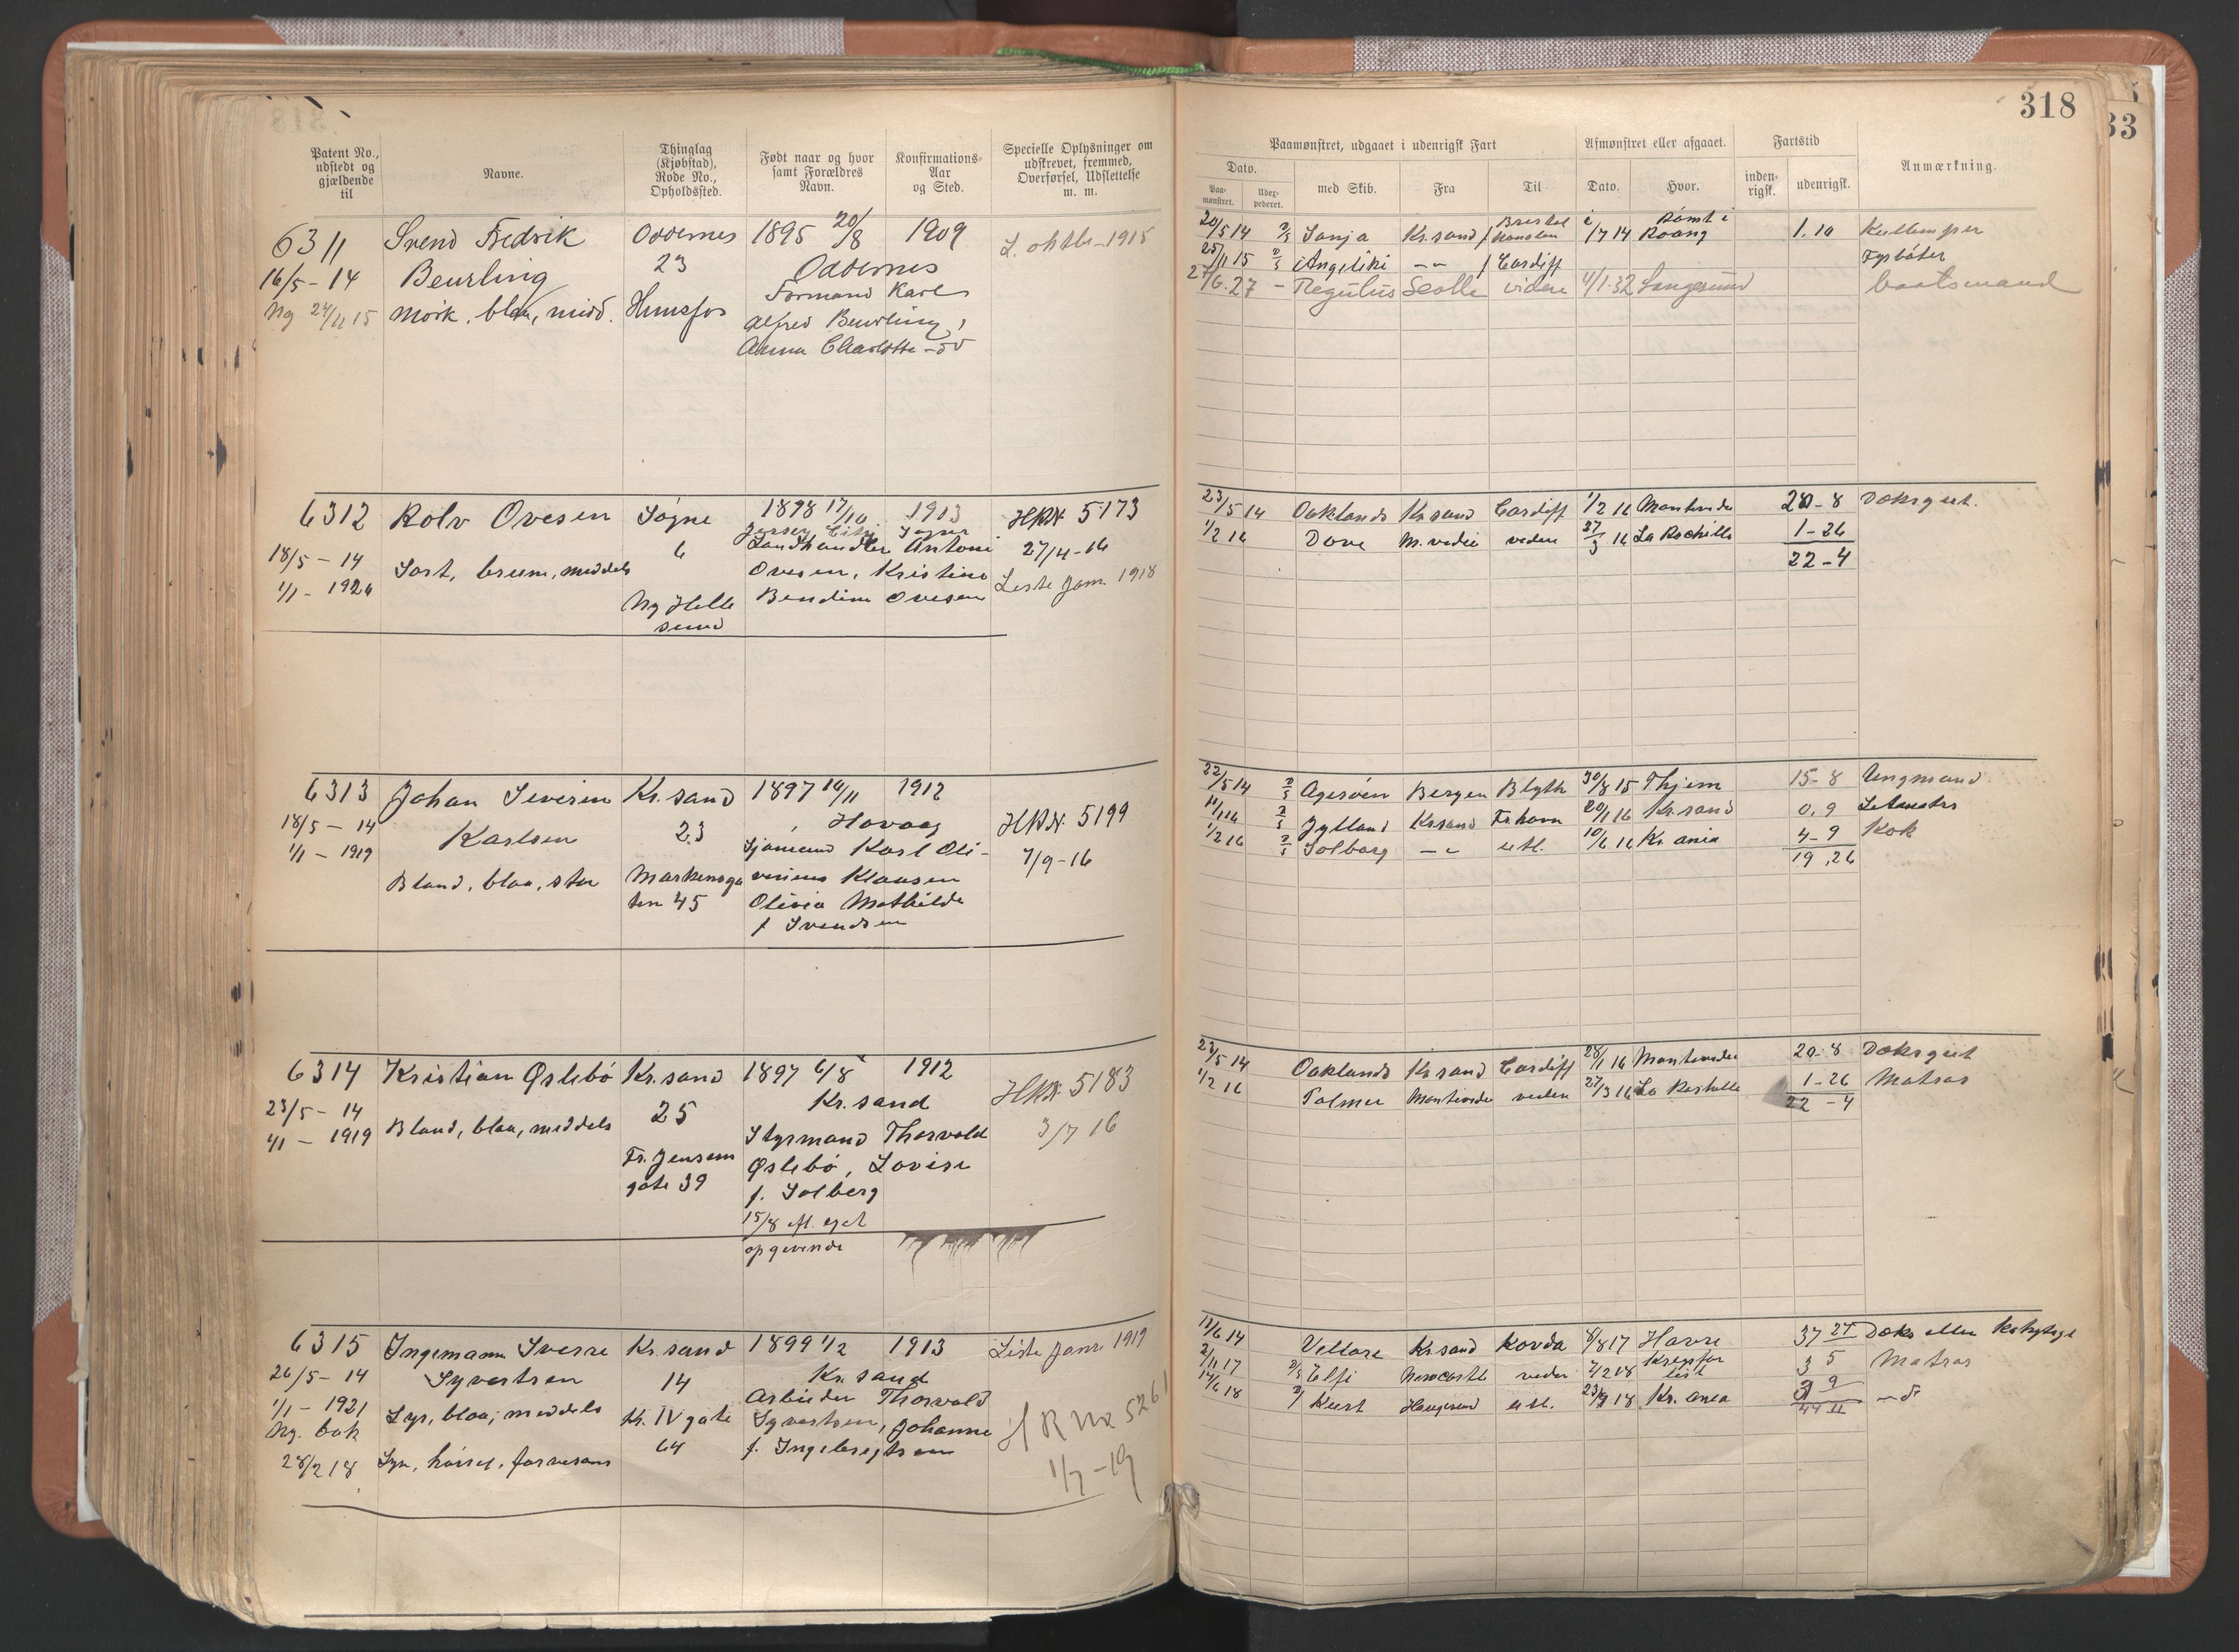 318
33
Patent No., udstedt og gjældende til
Navne.
Thinglag (Kjøbstad), Rode No., Opholdssted.
Født naar og hvor samt Forældres Navn.
Konfirmations-Aar og Sted.
Specielle Oplysninger om udskrevet, fremmed, Overførsel, Udslettelse m. m.
Paamønstret, udgaaet i udenrigsk Fart
Dato.
Paa-mønstret.
med Skib.
Fra
Til
Afmønstret eller afgaaet.
Dato.
Hvor.
Fartstid
inden-rigsk.
udenrigsk.
Anmærkning.
6311 Svend Fredrik Oddernes 1895 20/8 1909
16/5 - 14 Beurling 23 Oddernes
Ng 24/11 15 Mørk, blaa, midd. Hunsfos Formand Karl
Alfred Beurling,
Anna Charlotte
20/5 14 Sonja Kr.sand Bristol 1/7 14 1. 10 Kullemper
25/11 15 Angeliki Cardiff Fyrbøter
27/6.27 - Regulus videre 4/1.32 Langesund baatsmand
6312 Rolv Ovesen Søgne 1898 17/10 1913 HRN 5173
Jersey City Søgne
18/5 - 14 6 Landhandler Antoni 27/4 - 16
Sort, brune, middels Ovesen, Kristine Liste Janr 1918
1/1 - 1920 Ny Helle Bendine Ovesen
sund
23/5 14 Oaklands Kr.sand Cardiff 1/2 16 Montevideo 20-8 Dæksgut.
1/2 16 Dove M.vedio videre 27/3 16 La Rochelle 1-26
22-4
6313 Johan Severin Kr.sand 1897 16/11 1912
18/5 - 14 Karlsen 23 Høvaag HRN. 5199
1/1 - 1919 Sjømand Karl Oli- 7/9-16
Blond, blaa, stor Markensga verius Klausen
ten 45 Olivia Mathilde
f Svendsen
22/5 14 Agerøen Bergen Blyth 30/8 15 15-8 Ungmand
11/1 16 Jylland Kr.sand Fr.havn 20/1 16 Kr.sand 0.9 Letmatros
1/2 16 Solborg utl. 10/6 16 Kr.ania 4-9 Kok
19.26
6314 Kristian Øslebø Kr.sand 1897 6/8 1912 HRN. 5183
Kr.sand
23/5 - 14 Blond, blaa, middels 25 3/7 16
1/1 - 1919 Styrmand Thorvald
Fr. Jensens Øslebø, Lovise
gate 39 f. Solberg
15/8 efl. eget
opgivende
23/5 14 Oaklands Kr.sand Cardiff 28/1 16 Montevideo 20-8 Dæksgut
1/2 16 Palmer Montevideo videre 27/3 16 La Rochelle 1-26 Matros
22-4
6315 Ingemann Sverre Kr.sand 1899 1/2 1913 Liste Janr 1919
26/5 - 14 Syvertsen 14 Kr.sand
1/1 - 1921 Arbeider Thorvald
Lys, blaa, middels Kr. IV gate Syvertsen, Johanne HR No 5261
Ny. bok 64 f. Ingebregtsen
28/2 18 Syn, hørsel, farvesans 1/7-19
12/6 14 Vellore Kr.sand Kovda 8/8 17 Havre 37 27 Dæks eller
2/11 17 Elfi Newcastle videre 7/2 18 3 5 Matros
14/6 18 Kurt Haugesund utl. 18 Kr.ania